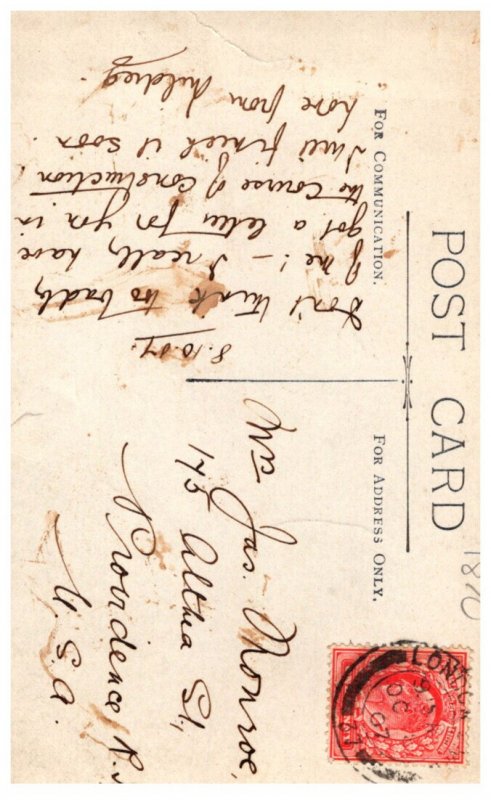 POST CARD
FOR COMMUNICATION.
FOR ADDRESS ONLY.
8.10.07.
Don't think too badly
of me! - I really have
got a letter for you in
the course of construction,
I will finish it soon.
Love from Mildred.
Mrs Jas. Monroe,
145 Althea St,
Providence R.
U.S.A.
1870
LONDON
OC
07